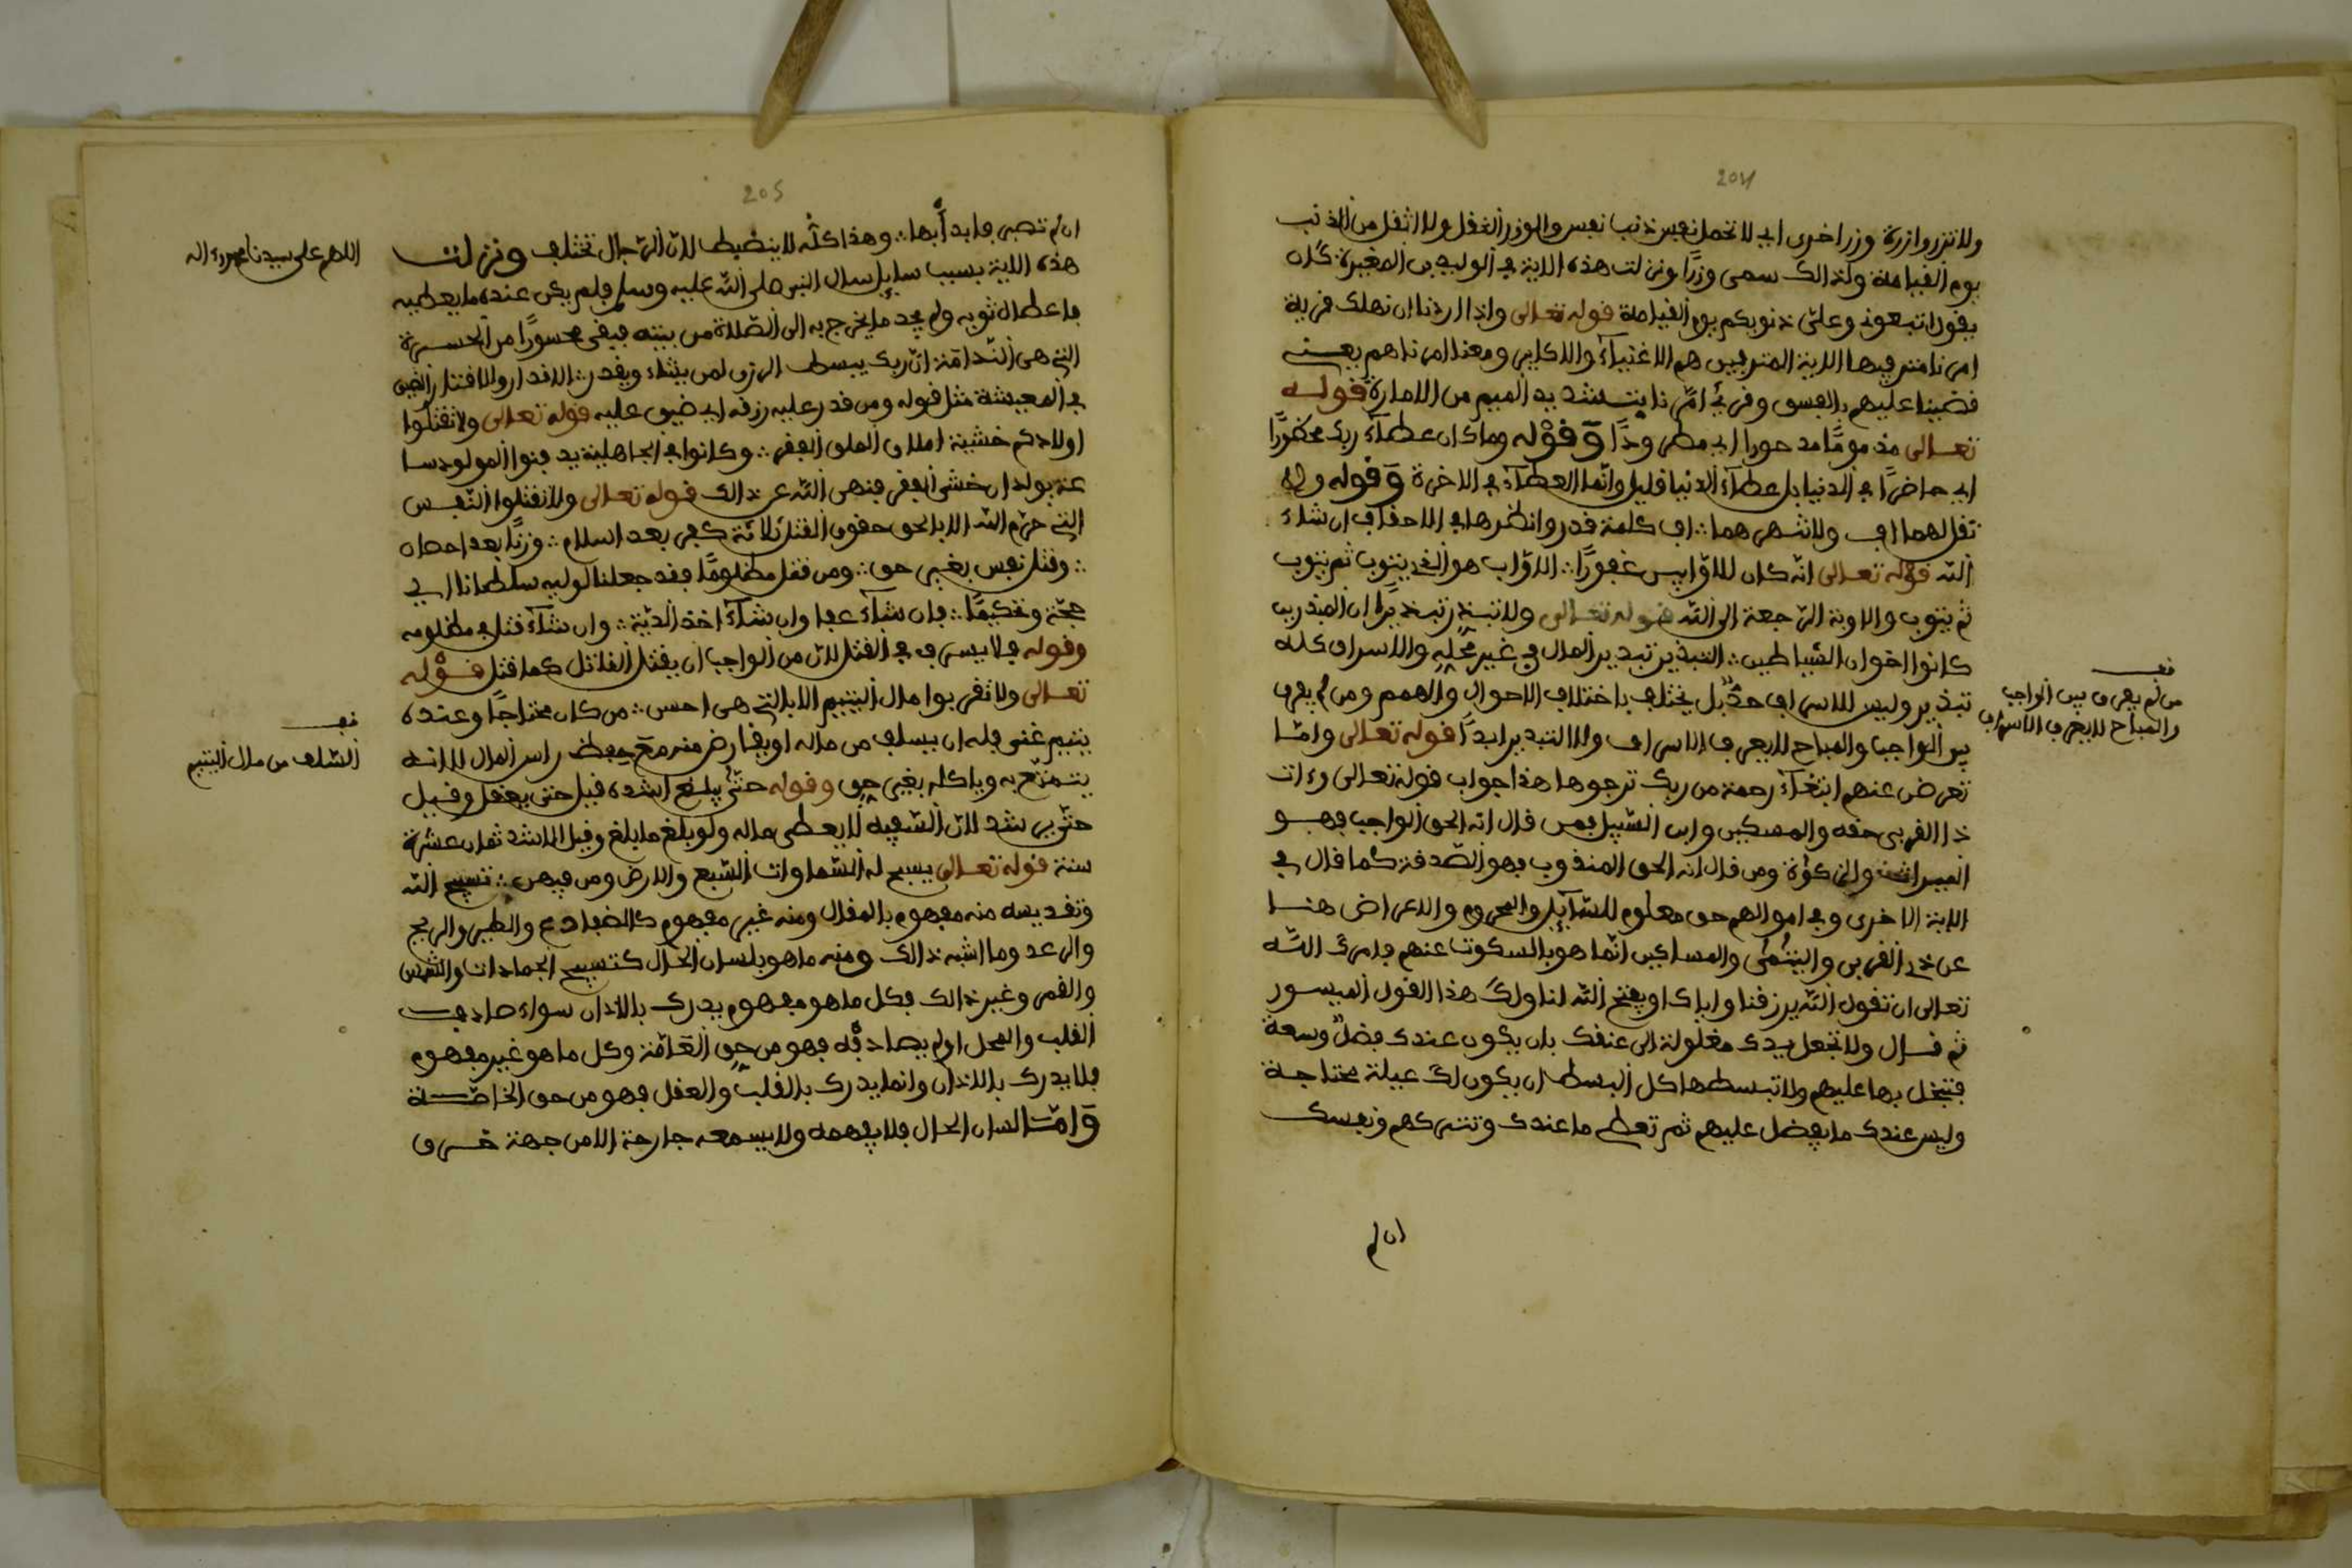 204
ولا تزر وازرة وزر اخرى اي لا تحمل نفس ذنب نفس والوزر الثقل ولا اثقل من الذنب
يوم القيامة ولذالك سمى وزرا ونزلت هذه الاية في الوليد بن المغيرة كان
يقول اتبعوني وعلي ذنوبكم يوم القيامة قوله تعالى واذا اردنا ان نهلك قرية
امرنا مترفيها الاية المترفين هم الاغنياء والاكابر ومعنا امرناهم يعني
قضينا عليهم بالفسق وقرئ امرنا بتشديد الميم من الامارة قوله
تعالى مذموما مدحورا اي مطرودا وقوله وما كان عطاء ربك محظورا
اي حاضرا في الدنيا بل عطاء الدنيا قليل وانما العطاء في الاخرة وقوله ولا
تقل لهما اف ولا تنهرهما اف كلمة قدر وانظرها في الاحقاف ان شاء
الله قوله تعالى انه كان للاوابين غفورا الاواب هو الذي يتوب ثم يتوب
ثم يتوب والاوبة الرجعة الى الله قوله تعالى ولا تبذر تبذيرا ان المبذرين
كانوا اخوان الشياطين التبذير تبدير المال في غير محله والاسراف كله
تبذير وليس للاسراف حد بل يختلف باختلاف الاحوال والهمم ومن لم يعرف
بين الواجب والمباح لا يعرف الاسراف ولا التبدير ابدا قوله تعالى واما
تعرض عنهم ابتغاء رحمة من ربك ترجوها هذا جواب قوله تعالى وءات
ذا القربى حقه والمسكين وابن السبيل فمن قال انه الحق الواجب فهو
الميراث والزكوة ومن قال انه الحق المندوب فهو الصدقة كما قال في
الاية الاخرى وفي اموالهم حق معلوم للسائل والمحروم والاعراض هنا
عن ذي القربى واليتمى والمساكين انما هو بالسكوت عنهم فامرك الله
تعالى ان تقول الله يرزقنا واياك او يفتح الله لنا ولك هذا القول الميسور
ثم قال ولا تجعل يدك مغلولة الى عنقك بان يكون عندك فضل وسعة
فتبخل بها عليهم ولا تبسطها كل البسط ان يكون لك عيلة محتاجة
وليس عندك ما يفضل عليهم ثم تعطي ما عندك وتتركهم ونفسك
ان لم
قف
من لم يعرف بين الواجب
والمباح لا يعرف الاسراف
205
ان لم تصبر فابدأ بها وهذا كله لا ينضبط لان الرجال تختلف ونزلت
هذه الاية بسبب سايل سال النبي صلى الله عليه وسلم فلم يكن عنده ما يعطيه
فاعطاه ثوبه ولم يجد ما يخرج به الى الصلاة من بيته فبقى محسورا من الحسرة
التي هي الندامة ان ربك يبسط الرزق لمن يشاء ويقدر الاقدار والاقتار الضيق
في المعيشة مثل قوله ومن قدر عليه رزقه اي ضيق عليه قوله تعالى ولا تقتلوا
اولادكم خشية املاق الملق الفقر وكانوا في الجاهلية يدفنوا المولود سا
عة يولد ان خشى الفقر فنهى الله عن ذالك قوله تعالى ولا تقتلوا النفس
التي حرم الله الا بالحق حقوق القتل ثلاثة كفر بعد اسلام وزنا بعد احصان
وقتل نفس بغير حق ومن قتل مظلوما فقد جعلنا لوليه سلطانا اي
حجة وتحكيما فان شاء عفا وان شاء اخذ الدية وان شاء قتل في مظلومه
وقوله فلا يسرف في القتل لان من الواجب ان يقتل القاتل كما قتل قوله
تعالى ولا تقربوا مال اليتيم الا بالتي هي احسن من كان محتاجا وعنده
يتيم غني فله ان يسلف من ماله او يقارض منه مع حفظ راس المال لا انه
يتمتع به وياكله بغير حق وقوله حتى يبلغ اشده قيل حتى يعقل وقيل
حتى يرشد لان السفيه لا يعطى ماله ولو بلغ ما بلغ وقيل الاشد ثمان عشرة
سنة قوله تعالى يسبح له السماوات السبع والارض ومن فيهن تسبيح الله
وتقديسه منه مفهوم بالمقال ومنه غير مفهوم كالضفادع والطير والريح
والرعد وما اشبه ذالك ومنه ما هو بلسان الحال كتسبيح الجمادات والشمس
والقمر وغير ذالك فكل ما هو مفهوم يدرك بالاذان سواء صادف
القلب والمحل او لم يصادفه فهو من حق العامة وكل ما هو غير مفهوم
فلا يدرك بالاذان وانما يدرك بالقلب والعقل فهو من حق الخاصة
واما لسان الحال فلا يفهمه ولا يسمعه جارحة الا من جهة خرق
اللهم على سيدنا محمد وءاله
قف
السلف من مال اليتيم